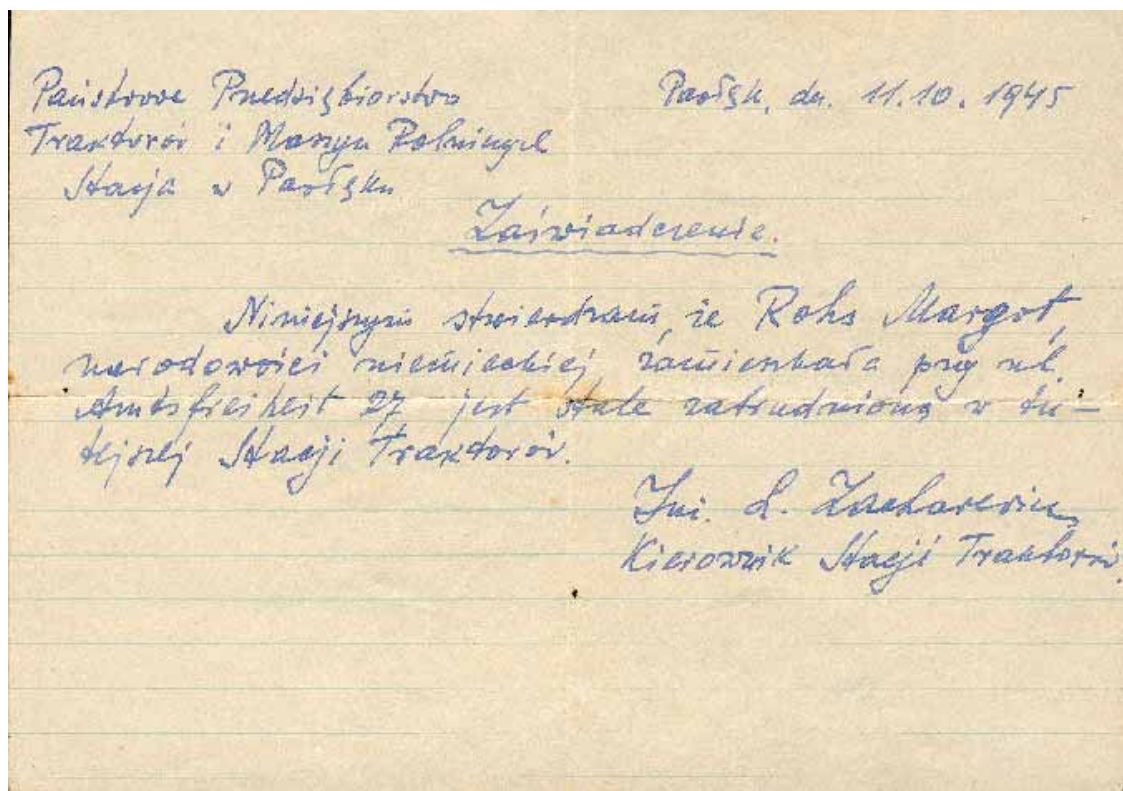 Państwowe Przedsiębiorstwo
Traktorów i Maszyn Rolniczych
Stacja w Pasłęku
Pasłęk, dn. 11.10.1945
Zaświadczenie.
Niniejszym stwierdzam, że Rohs Margot,
narodowości niemieckiej zamieszkała przy ul.
Amtsfreiheit 27 jest stale zatrudnioną w tu-
tejszej Stacji Traktorów.
Inż. L. Zacharewicz
Kierownik Stacji Traktorów.